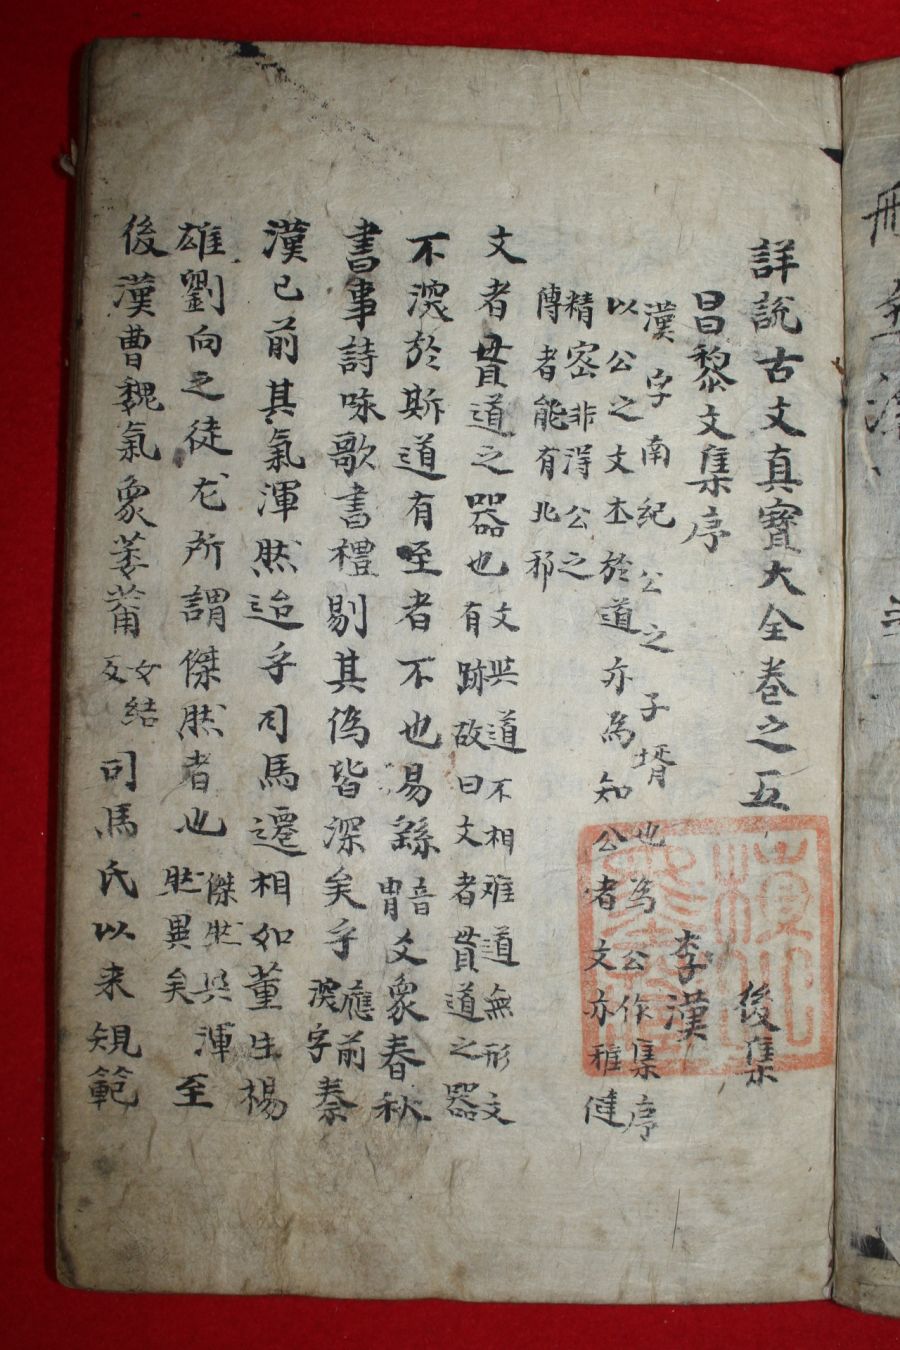 詳說古文真寶大全卷之五 後集
昌黎文集序 李漢
漢字南紀公之子壻也為公作集序
以公之文本於道亦為知公者文亦稚健
精密非得公之
傳者能有北邪
文者貫道之器也 文與道不相難道無形文
有跡故曰文者貫道之器
不深於斯道有至者不也易繇 音冑 爻象春秋
書事詩咏歌書禮剔其偽皆深矣乎 應前深字 秦
漢已前其氣渾然迨乎司馬遷相如董生楊
雄劉向之徒尤所謂傑然者也 傑然與渾然異矣 至
後漢曹魏氣象萎薾 女結反 司馬氏以来規範